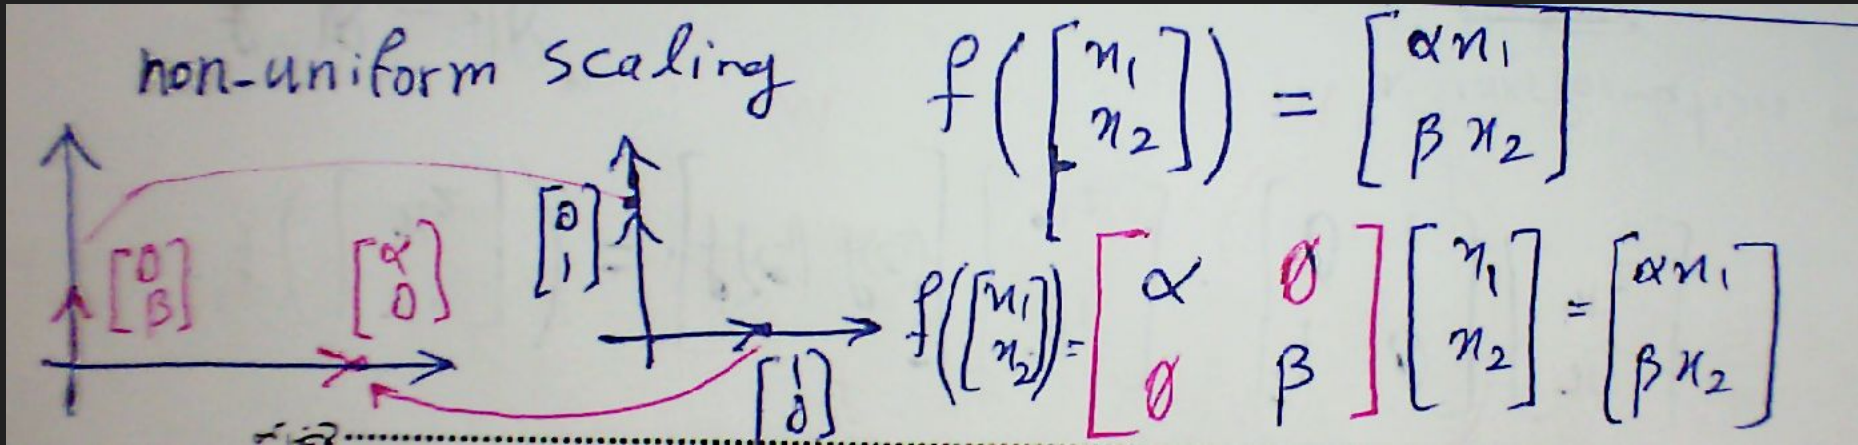 non-uniform scaling
f([x₁ x₂]) = [αx₁ βx₂]
[0 β]
[α 0]
[0 1]
[1 0]
f([x₁ x₂]) = [α 0 0 β] [x₁ x₂] = [αx₁ βx₂]